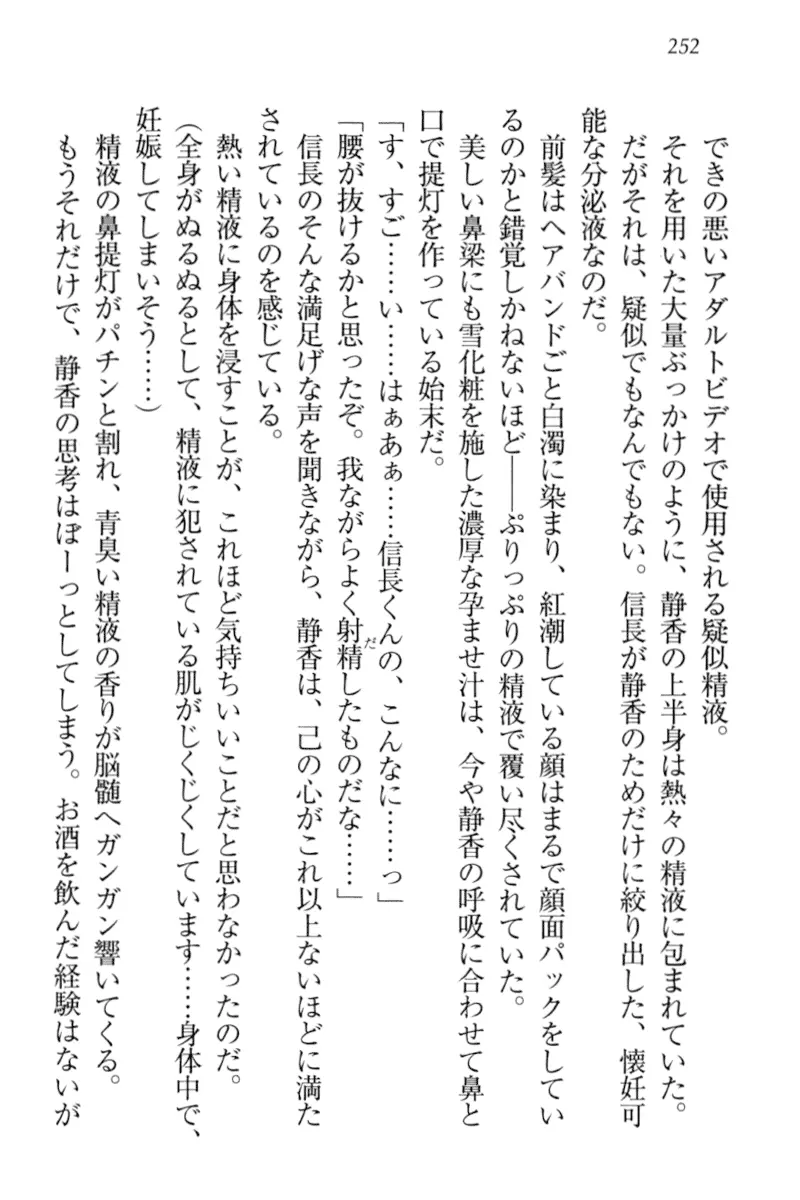 252
できの悪いアダルトビデオで使用される疑似精液。
それを用いた大量ぶっかけのように、静香の上半身は熱々の精液に包まれていた。
だがそれは、疑似でもなんでもない。信長が静香のためだけに絞り出した、懐妊可
能な分泌液なのだ。
前髪はヘアバンドごと白濁に染まり、紅潮している顔はまるで顔面パックをしてい
るのかと錯覚しかねないほど――ぷりっぷりの精液で覆い尽くされていた。
美しい鼻梁にも雪化粧を施した濃厚な孕ませ汁は、今や静香の呼吸に合わせて鼻と
口で提灯を作っている始末だ。
「す、すご……い……はぁあぁ……信長くんの、こんなに……っ」
「腰が抜けるかと思ったぞ。我ながらよく射精したものだな……」
だ
信長のそんな満足げな声を聞きながら、静香は、己の心がこれ以上ないほどに満た
されているのを感じている。
熱い精液に身体を浸すことが、これほど気持ちいいことだと思わなかったのだ。
（全身がぬるぬるとして、精液に犯されている肌がじくじくしています……身体中で、
妊娠してしまいそう……）
精液の鼻提灯がパチンと割れ、青臭い精液の香りが脳髄へガンガン響いてくる。
もうそれだけで、静香の思考はぼーっとしてしまう。お酒を飲んだ経験はないが